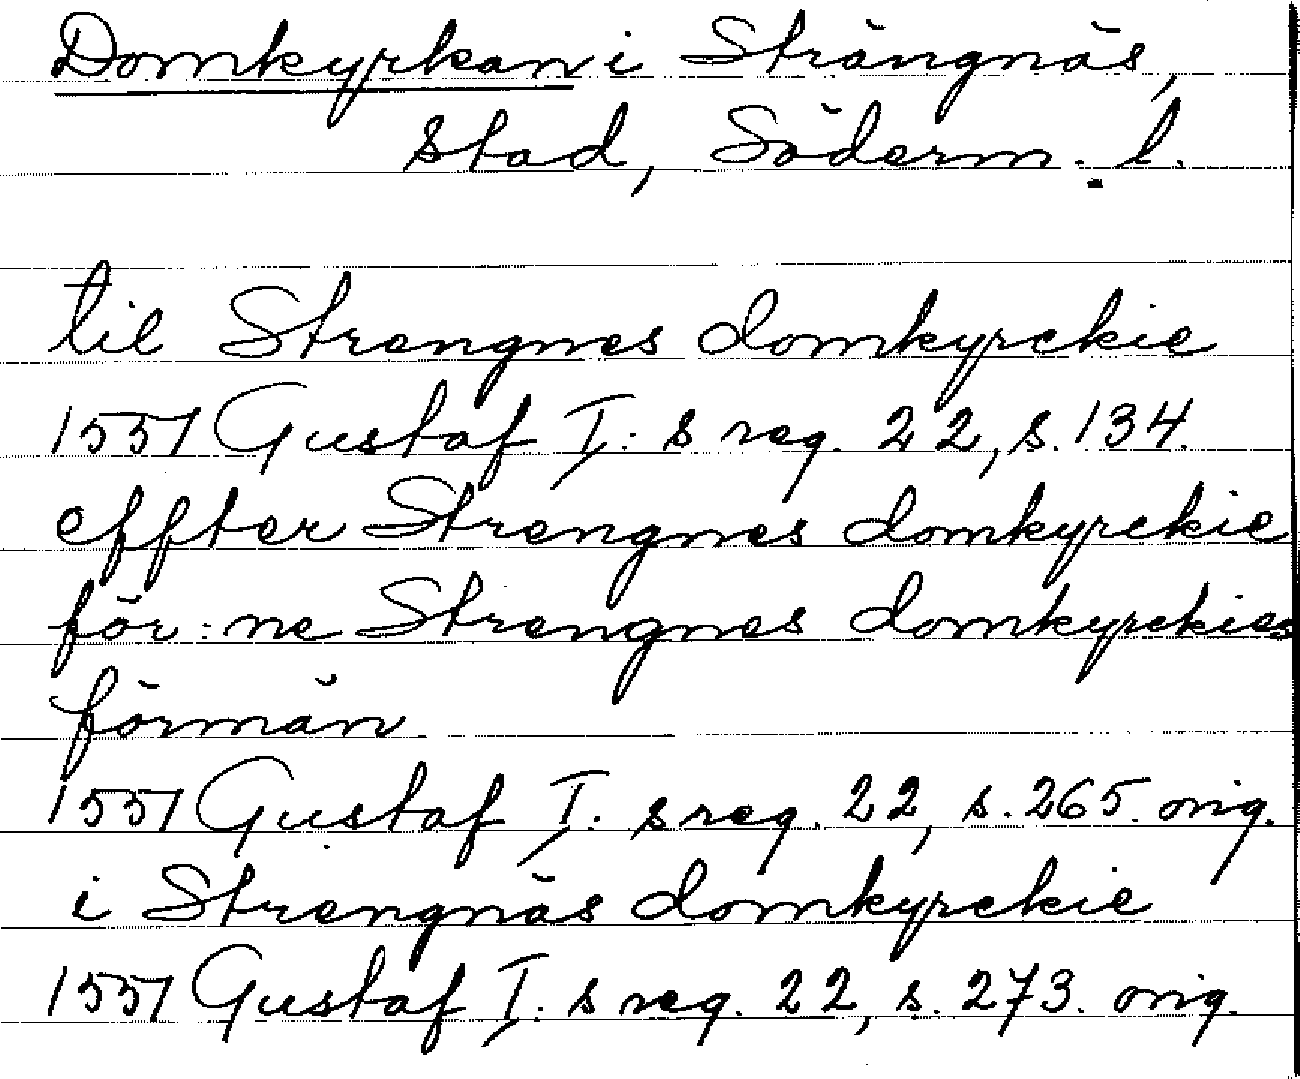 Domkyrkan i Strängnäs,
stad, Söderm. l.
til Strengnes domkyrckie
1551 Gustaf I: s reg. 22, s. 134.
effter Strengnes domkyrckie
för: ne Strengnes domkyrckies
förmän
1551 Gustaf I: s reg. 22, s. 265. orig.
i Strengnäs domkyrckie
1551 Gustaf I: s reg. 22, s. 273. orig.